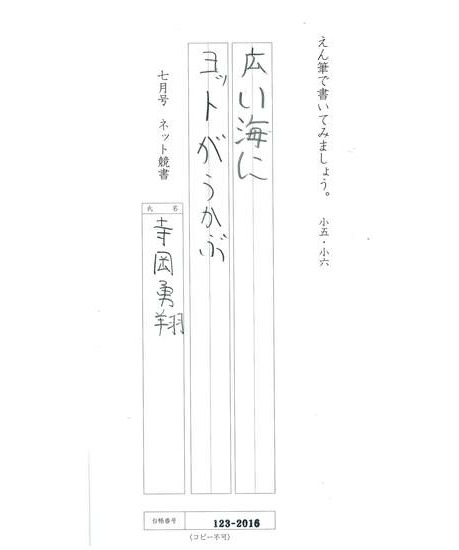 えん筆で書いてみましょう。　小五・小六
広い海に
ヨットがうかぶ
七月号　ネット競書
氏名
寺岡勇翔
台帳番号
123-2016
(コピー不可)